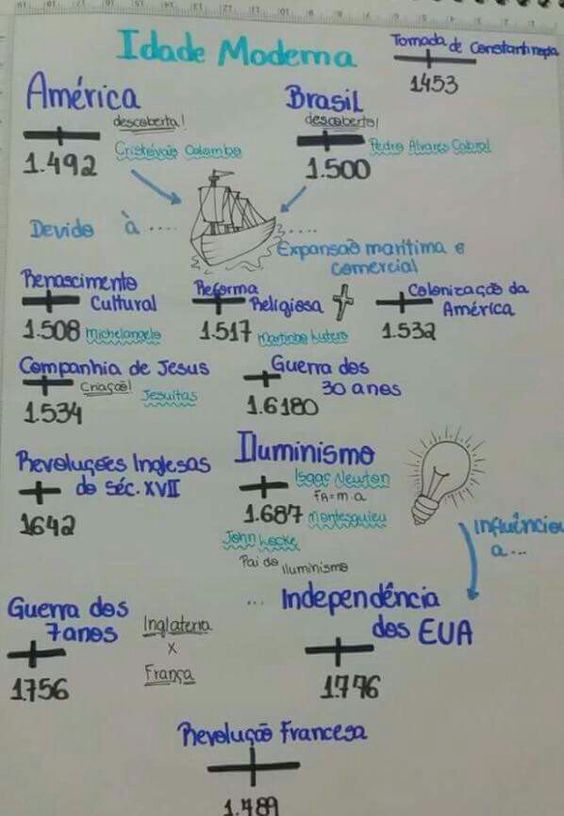 Idade Moderna
Tomada de Constantinopla
1453
América
descoberta!
Cristóvão Colombo
1.492
Brasil
descoberto!
Pedro Álvares Cabral
1.500
Devido à ....
....
Expansão marítima e
comercial
Renascimento
Cultural
1.508 Michelangelo
Reforma
Religiosa
1.517 Martinho Lutero
Colonização da
América
1.532
Companhia de Jesus
Criação!
Jesuítas
1.534
Guerra dos
30 anos
1.6180
Revoluções Inglesas
do Séc. XVII
1642
Iluminismo
Isaac Newton
FA=m.a
1.687 Montesquieu
John Locke
Pai do Iluminismo
Influenciou
a...
Guerra dos
7 anos
1.756
Inglaterra
x
França
... Independência
dos EUA
1.776
Revolução Francesa
1.789